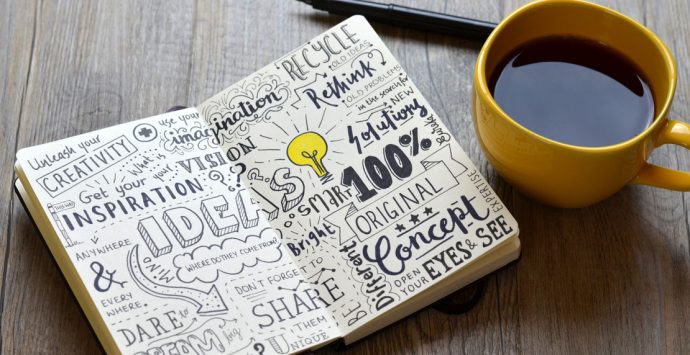 Unleash your
CREATIVITY
use your
imagination
What is
your
VISION
??
Get your
INSPIRATION
ANYWHERE
&
EVERY
where.
IDEAS
MIND
WHERE DO THEY COME FROM?
DON'T
FORGET
to
SHARE
THEM
DARE to
RECYCLE
OLD IDEAS
Rethink
OLD PROBLEMS
in the search for
NEW
Solutions
& SMART
100%
ORIGINAL
Bright
Different
Concept
BE
OPEN
YOUR
EYES & SEE
EXPERTISE